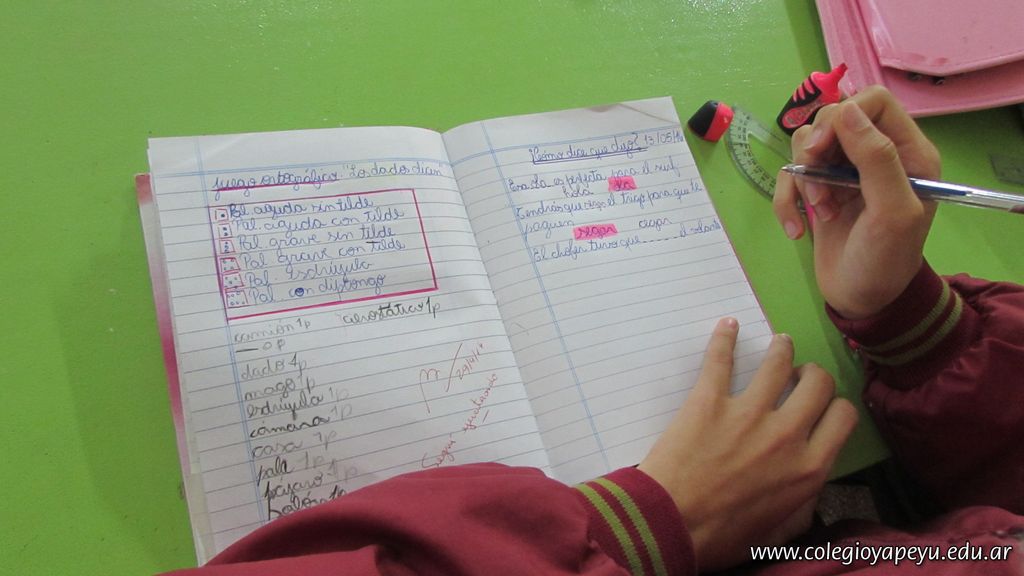 Juego ortográfico: "Los dados dicen"
Pal aguda sin tilde
Pal. aguda con tilde
Pal grave sin tilde
Pal grave con tilde
Pal Esdrújula
Pal con diptongo
camión 1p aerostático 1p
0 p
dado 1p
mago 1p
esdrújula 1p
cámara 1p
casa 1p
pala 1p
pájaro 1p
29/4/14
Seguí
¿Cómo dice que dijo? 13/05/14
Esa ola es perfecta para el surf
hola
Tendrás que el traje para que te
paguen segar cegar
El chofer tuvo que el volante
www.colegioyapeyu.edu.ar